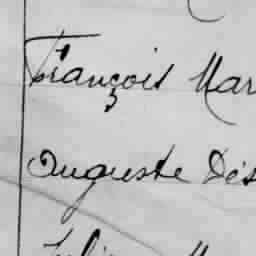 François Mar
Auguste Dés